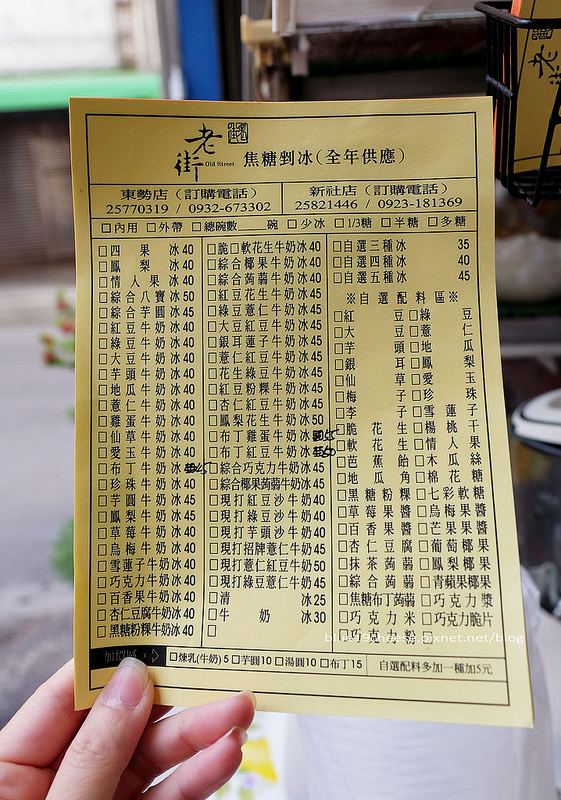 老街 Old Street 焦糖剉冰(全年供應)
東勢店(訂購電話)
25770319 / 0932-673302
新社店(訂購電話)
25821446 / 0923-181369
□內用 □外帶 □總碗數 碗 □少冰 □1/3糖 □半糖 □多糖
□四果冰40
□鳳梨冰40
□情人果冰40
□綜合八寶冰50
□綜合芋圓冰45
□紅豆牛奶冰40
□綠豆牛奶冰40
□大豆牛奶冰40
□芋頭牛奶冰40
□地瓜牛奶冰40
□薏仁牛奶冰40
□雞蛋牛奶冰40
□仙草牛奶冰40
□愛玉牛奶冰40
□布丁牛奶冰45
□珍珠牛奶冰40
□芋圓牛奶冰45
□鳳梨牛奶冰45
□草莓牛奶冰40
□烏梅牛奶冰40
□雪蓮子牛奶冰40
□巧克力牛奶冰40
□百香果牛奶冰40
□杏仁豆腐牛奶冰40
□黑糖粉粿牛奶冰40
□脆□軟花生牛奶冰40
□綜合椰果牛奶冰40
□綜合蒟蒻牛奶冰40
□紅豆花生牛奶冰45
□綠豆薏仁牛奶冰45
□大豆紅豆牛奶冰45
□銀耳蓮子牛奶冰45
□薏仁紅豆牛奶冰45
□花生綠豆牛奶冰45
□紅豆粉粿牛奶冰45
□杏仁紅豆牛奶冰45
□鳳梨花生牛奶冰50
□布丁雞蛋牛奶冰55
□布丁紅豆牛奶冰50
□綜合巧克力牛奶冰45
□綜合椰果蒟蒻牛奶冰45
□現打紅豆沙牛奶40
□現打綠豆沙牛奶40
□現打芋頭沙牛奶40
□現打招牌薏仁牛奶45
□現打薏仁紅豆牛奶50
□現打綠豆薏仁牛奶45
□清冰25
□牛奶冰30
□
□自選三種冰 35
□自選四種冰 40
□自選五種冰 45
※自選配料區※
□紅豆 □綠豆
□大豆 □薏仁
□芋頭 □地瓜
□銀耳 □鳳梨
□仙草 □愛玉
□梅子 □珍珠
□李子 □雪蓮子
□脆花生 □楊桃干
□軟花生 □情人果
□芭蕉飴 □木瓜絲
□地瓜角 □棉花糖
□黑糖粉粿 □七彩軟糖
□草莓果醬 □烏梅果醬
□百香果醬 □芒果果醬
□杏仁豆腐 □葡萄椰果
□抹茶蒟蒻 □鳳梨椰果
□綜合蒟蒻 □青蘋果椰果
□焦糖布丁蒟蒻 □巧克力漿
□巧克力米 □巧克力脆片
□巧克力粉
□煉乳(牛奶)5 □芋圓10 □湯圓10 □布丁15
自選配料多加一種加5元
blue1989cheese.pixnet.net/blog